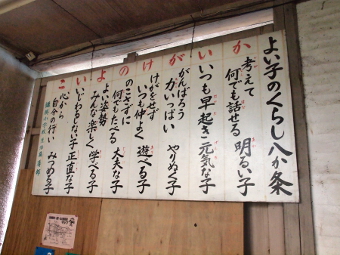 よい子のくらし八か条
か
考えて
何でも話せる 明るい子
い
いつも早起き 元気な子
が
がんばろう
がいっぱい やりぬく子
け
けがをせず
いつも仲よく 遊べる子
の
のこさずに
何でもたべる 丈夫な子
よ
よい姿勢
みんな楽しく 学べる子
い
いじわるしない子 正直な子
こ
心から
自分の行い みつめる子